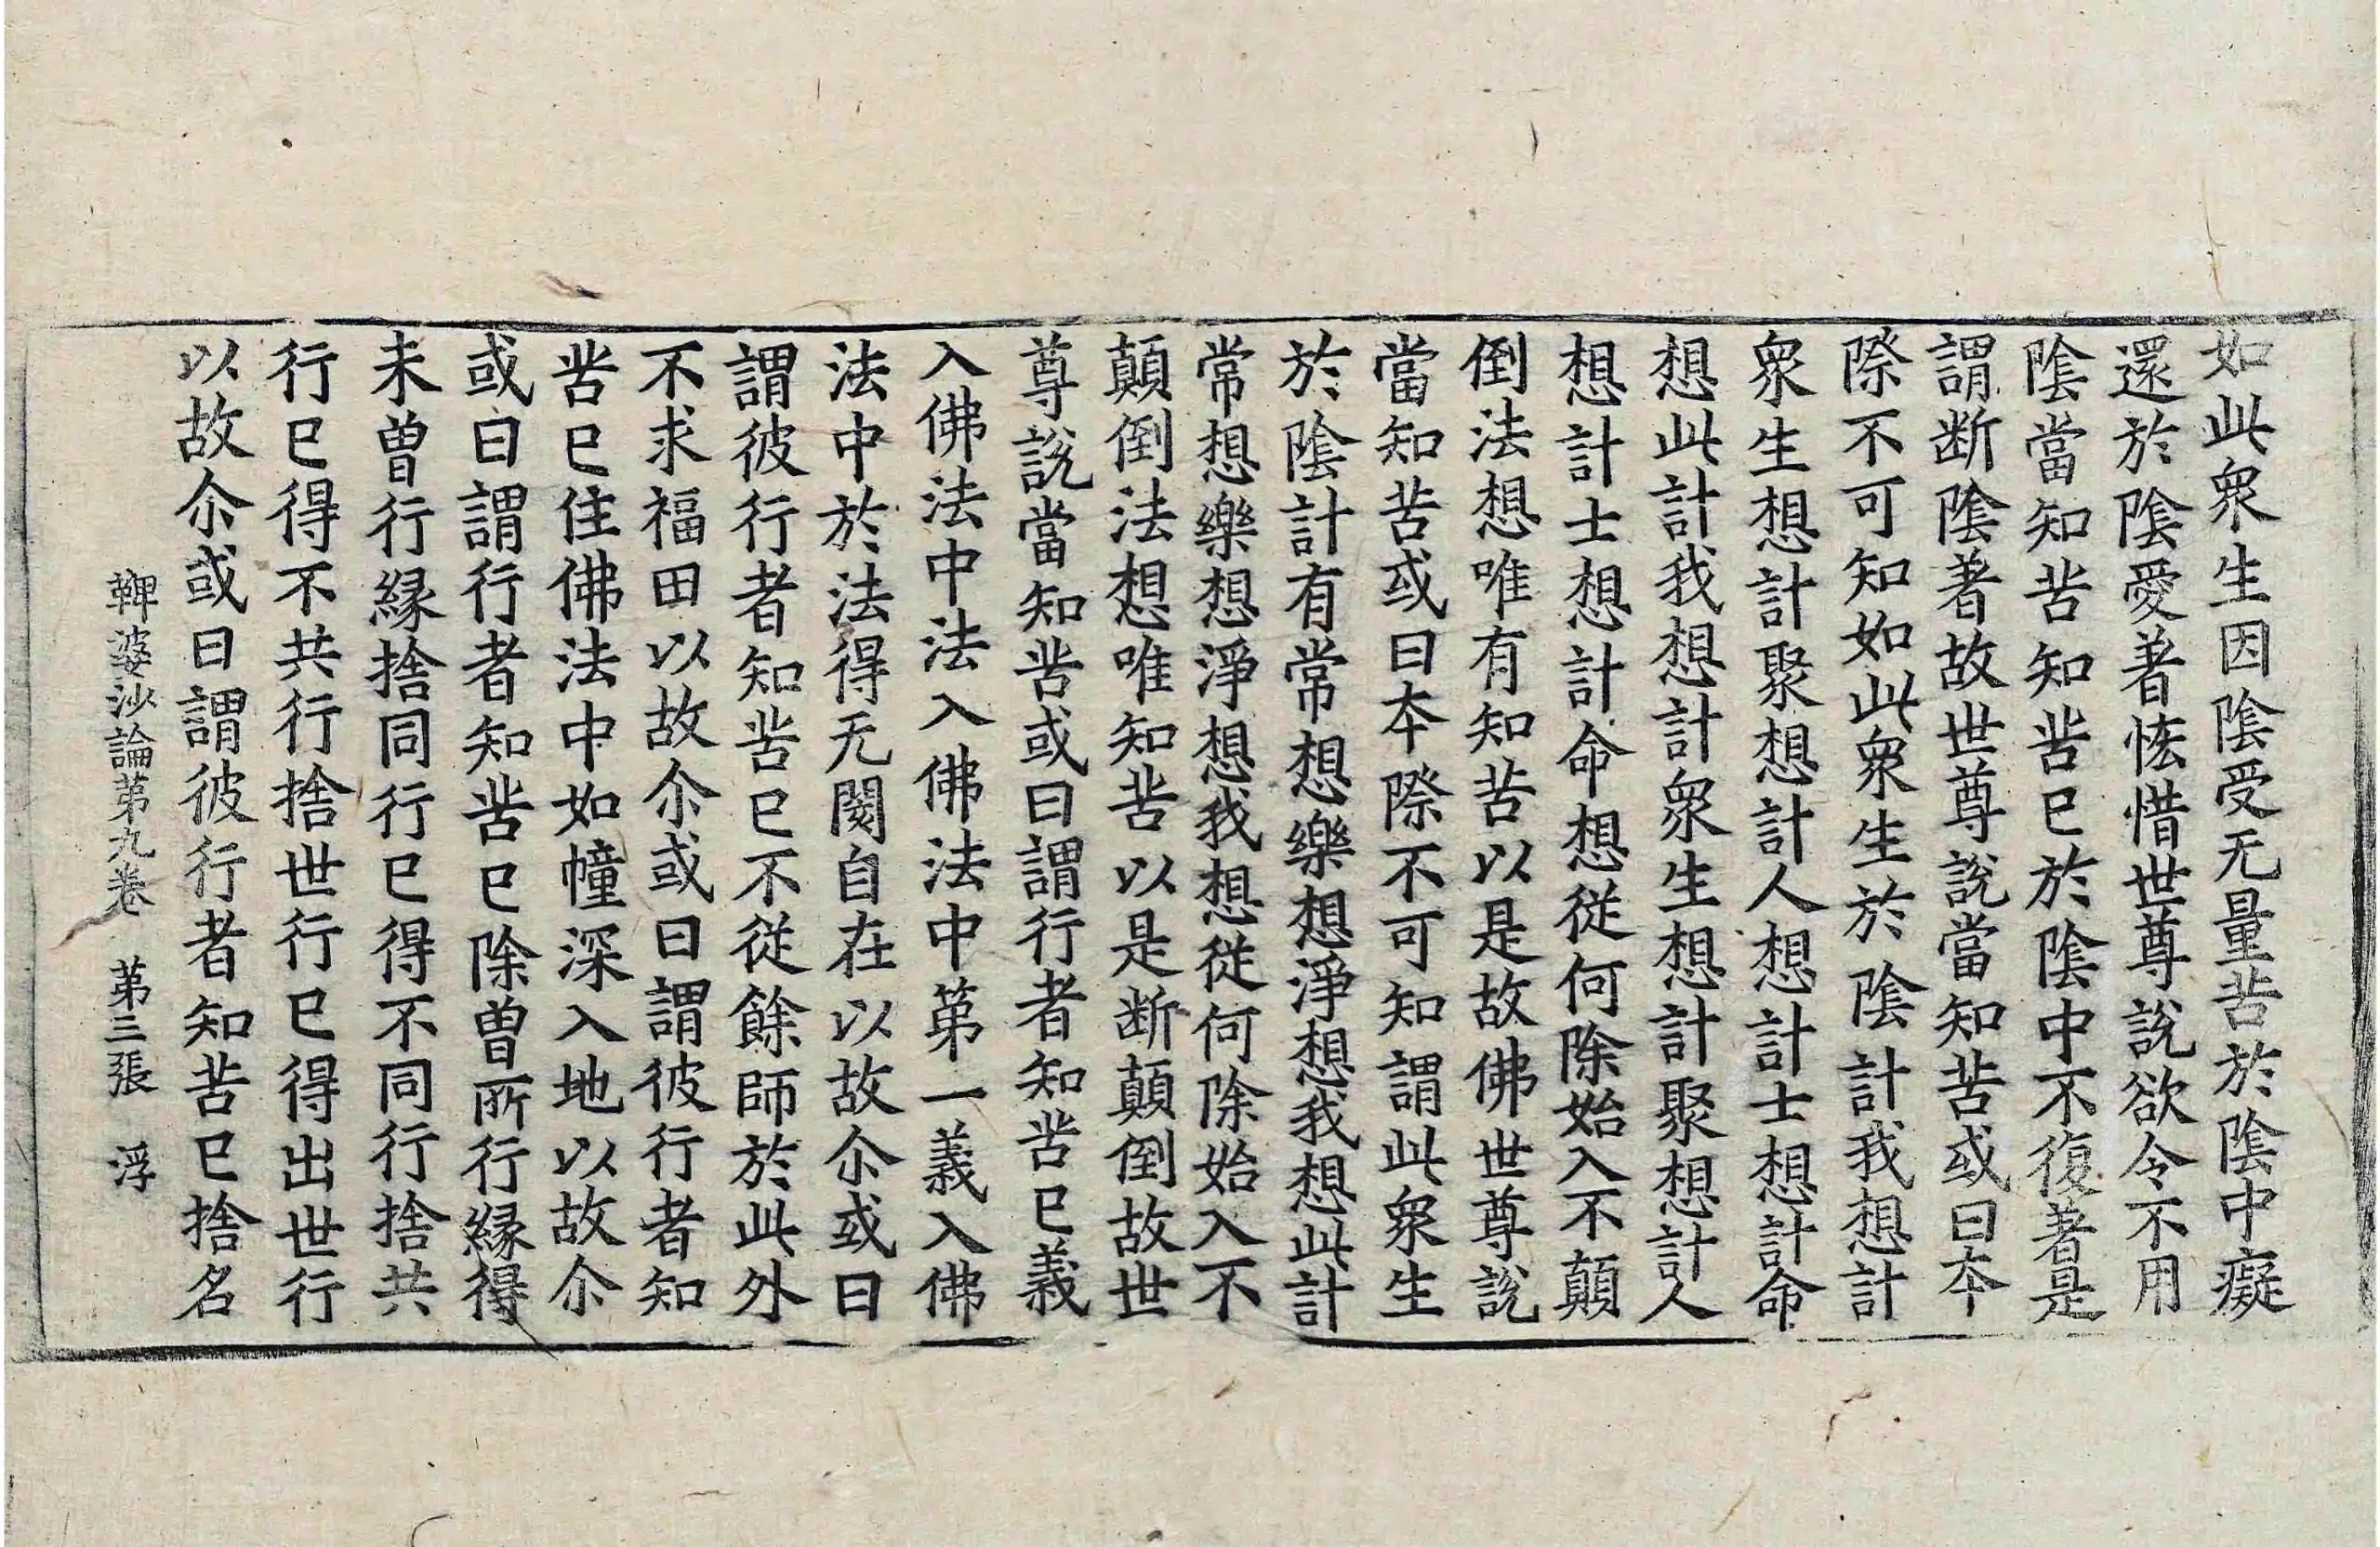 如此衆生因陰受无量苦於陰中癡
還於陰愛著恡惜世尊說欲令不用
陰當知苦知苦已於陰中不復著是
謂断陰著故世尊說當知苦或曰本
際不可知如此衆生於陰計我想計
衆生想計聚想計人想計士想計命
想此計我想計衆生想計聚想計人
想計士想計命想從何除始入不顛
倒法想唯有知苦以是故佛世尊說
當知苦或曰本際不可知謂此衆生
於陰計有常想樂想淨想我想此計
常想樂想淨想我想從何除始入不
顛倒法想唯知苦以是断顛倒故世
尊說當知苦或曰謂行者知苦已義
入佛法中法入佛法中第一義入佛
法中於法得无閡自在以故尒或曰
謂彼行者知苦已不從餘師於此外
不求福田以故尒或曰謂彼行者知
苦已住佛法中如幢深入地以故尒
或曰謂行者知苦已除曾所行縁得
未曾行縁捨同行已得不同行捨共
行已得不共行捨世行已得出世行
以故尒或曰謂彼行者知苦已捨名
鞞婆沙論第九卷　第三張　浮